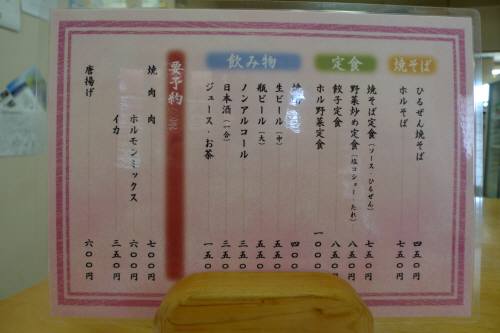 焼そば
ひるぜん焼そば 四五〇円
ホルそば 七五〇円
定食
焼そば定食(ソース・ひるぜん) 七五〇円
野菜炒め定食(塩コショー・たれ) 八五〇円
餃子定食 八五〇円
ホル野菜定食 一〇〇〇円
飲み物
四〇〇円
生ビール(中) 五五〇円
瓶ビール(大) 五五〇円
ノンアルコール 三五〇円
日本酒(一合) 三五〇円
ジュース・お茶 一五〇円
要予約
焼肉 肉 七〇〇円
ホルモンミックス 六〇〇円
イカ 三五〇円
唐揚げ 六〇〇円